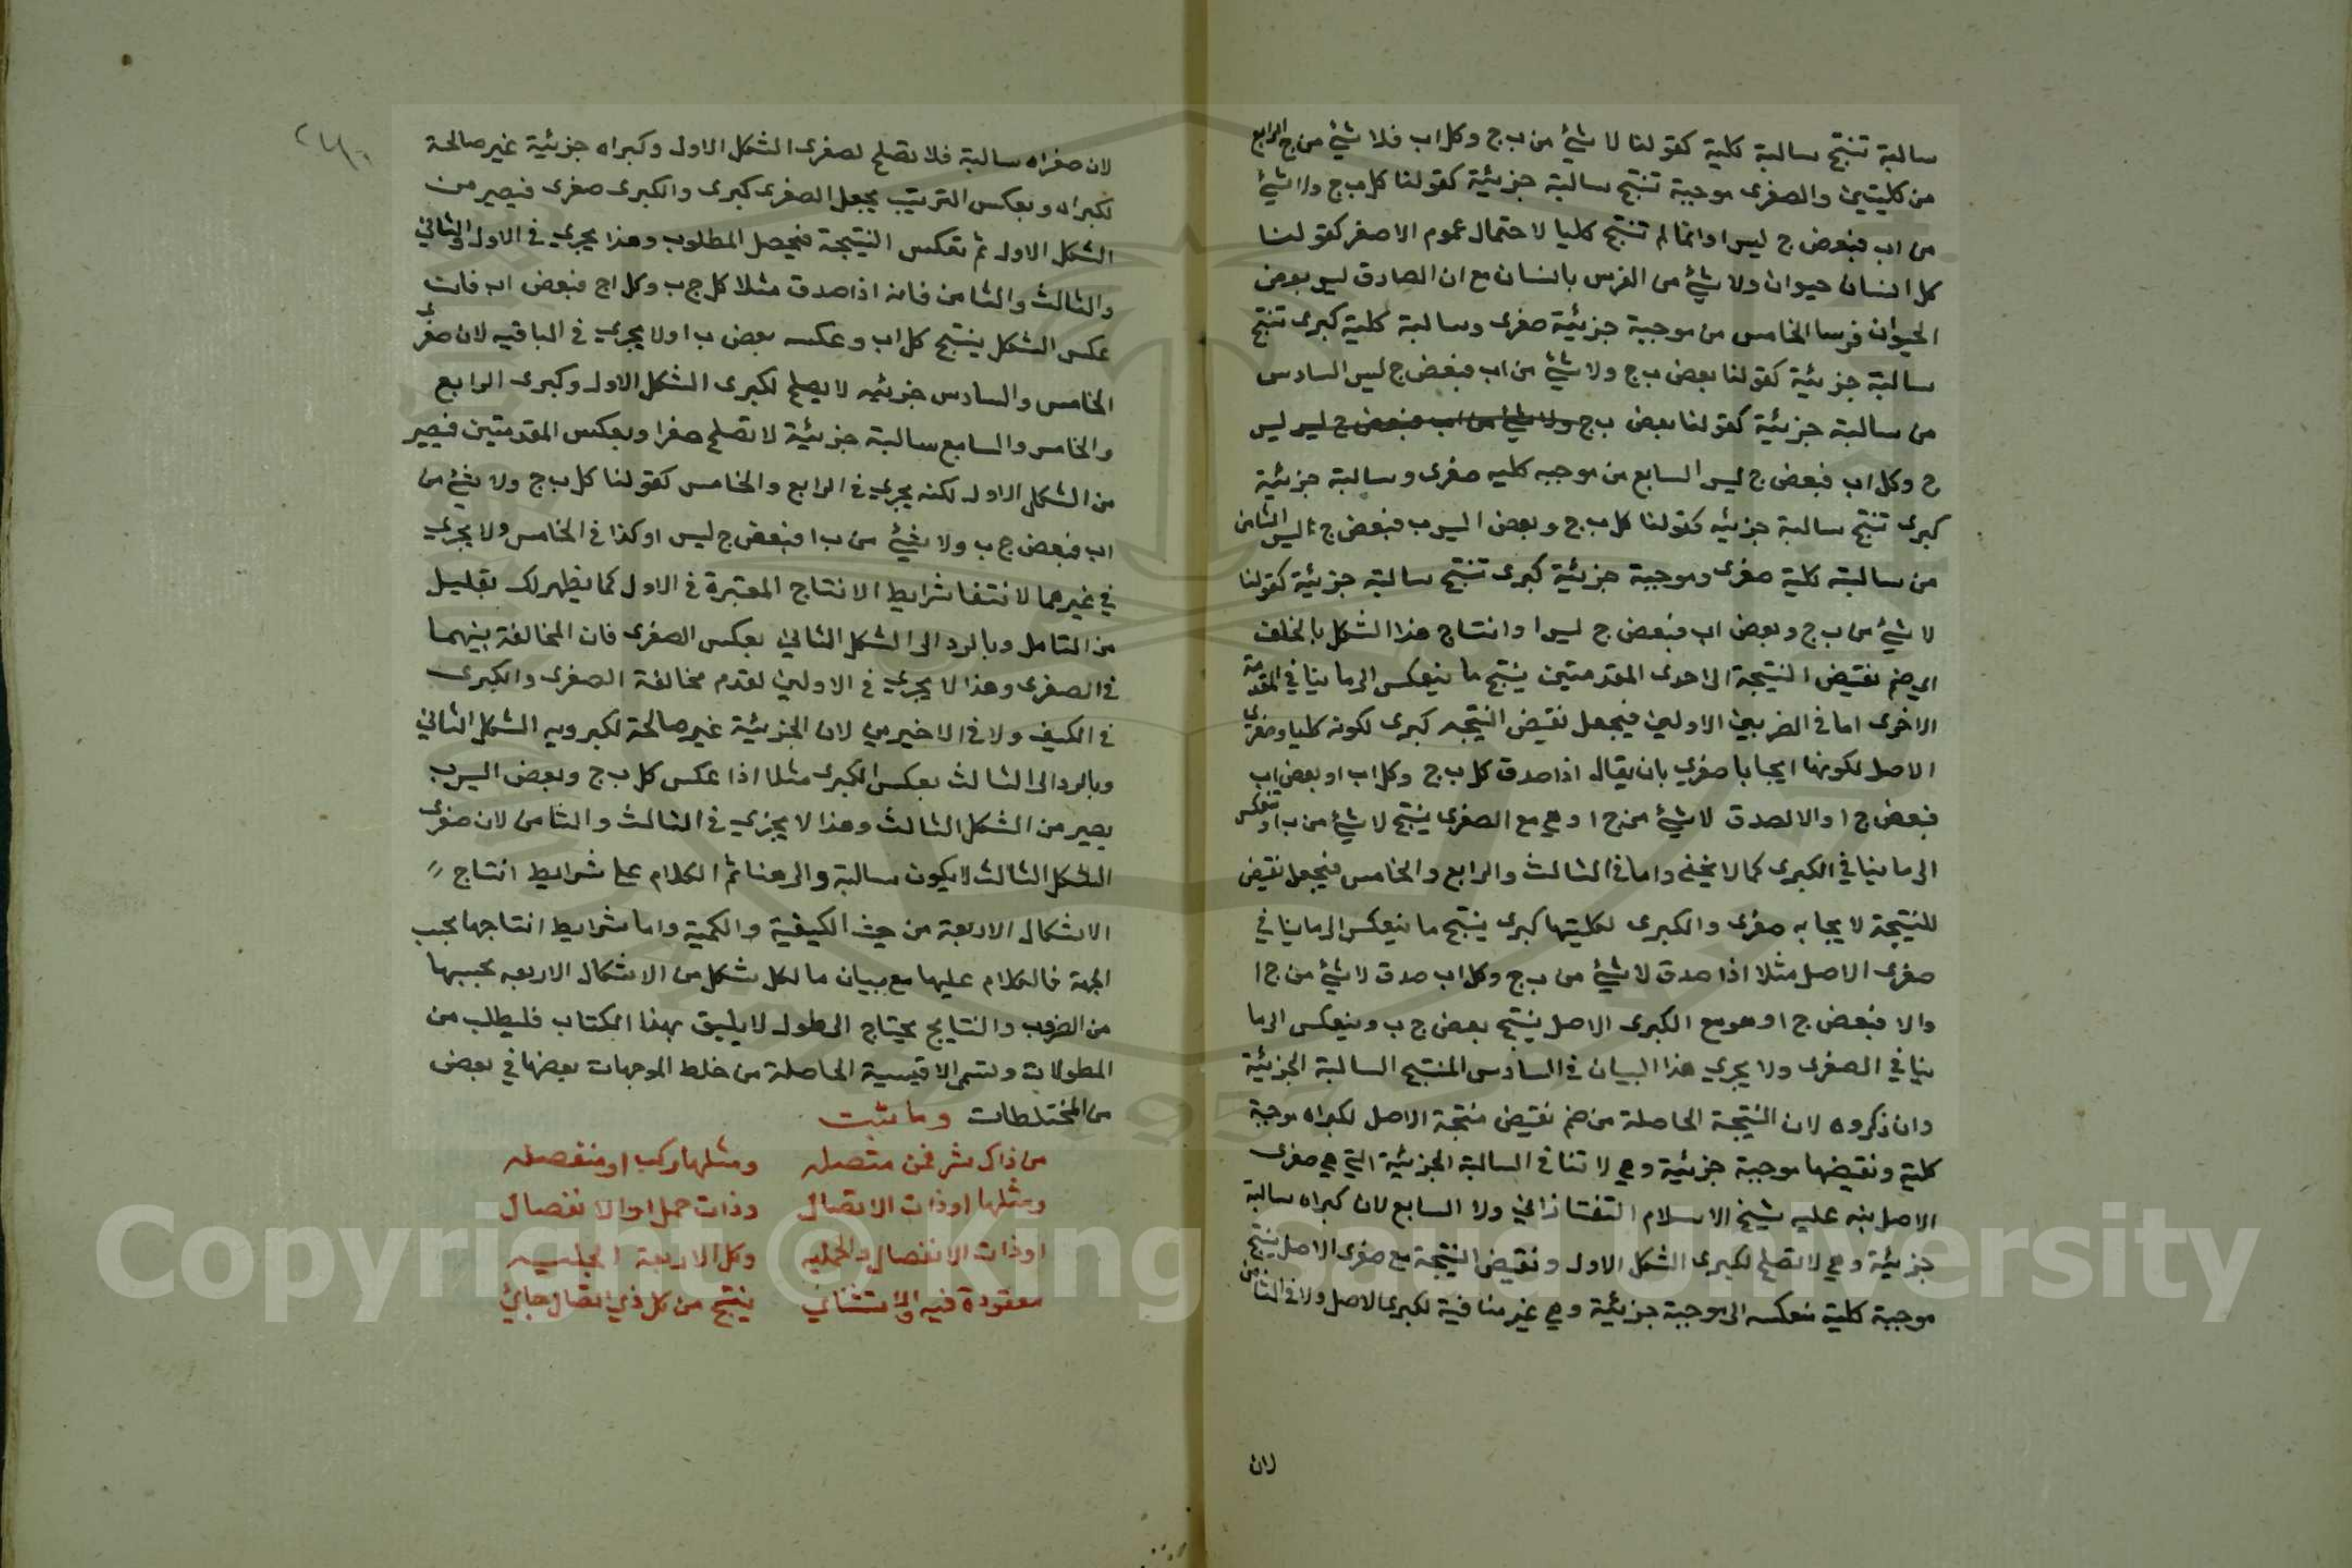 سالبة تنتج سالبة كلية كقولنا لا شئ من ب ج وكل اب فلا شئ من ج ا الرابع
من كليتين والصغرى موجبة تنتج سالبة جزئية كقولنا كل ب ج ولا شئ
من اب فبعض ج ليس ا وانما لم تنتج كليا لاحتمال عموم الاصغر كقولنا
كل انسان حيوان ولا شئ من الفرس بانسان مع ان الصادق ليس بعض
الحيوان فرسا الخامس من موجبة جزئية صغرى وسالبة كلية كبرى تنتج
سالبة جزئية كقولنا بعض ب ج ولا شئ من اب فبعض ج ليس السادس
من سالبة جزئية كقولنا بعض ب ج ولا شئ من اب فبعض ج ليس ليس
ج وكل اب فبعض ج ليس السابع من موجبه كليه صغرى وسالبة جزئية
كبرى تنتج سالبة جزئيه كقولنا كل ب ج وبعض ا ليس ب فبعض ج ا ليس الثامن
من سالبة كلية صغرى وموجبة جزئية كبرى تنتج سالبة جزئية كقولنا
لا شئ من ب ج وبعض اب فبعض ج ليس ا وانتاج هذا الشكل بالخلف
اي ضم نقيض النتيجة الى احدى المقدمتين ينتج ما ينعكس الى ما ينافي المقدمة
الاخرى اما في الضربين الاولين فيجعل نقيض النتيجه كبرى لكونه كليا وصغرى
الاصل لكونها ايجابا صغرى بان يقال اذا صدق كل ب ج وكل اب او بعض اب
فبعض ج ا والا لصدق لا شئ من ج ا وهي مع الصغرى ينتج لا شئ من ب ا وتنعكس
الى ما ينافي الكبرى كما لا يخفى واما في الثالث والرابع والخامس فيجعل نقيض
للنتيجة لايجابه صغرى والكبرى لكليتها كبرى ينتج ما ينعكس الى ما ينافي
صغرى الاصل مثلا اذا صدق لا شئ من ب ج وكل اب صدق لا شئ من ج ا
والا فبعض ج ا وهو مع الكبرى الاصل ينتج بعض ج ب وينعكس الى ما
ينافي الصغرى ولا يجري هذا البيان في السادس المنتج السالبة الجزئية
وان ذكروه لان النتيجة الحاصلة من ضم نقيض منتجة الاصل لكبراه موجبة
كلية ونقيضها موجبة جزئية وهي لا تنافى السالبة الجزئية التي هي صغرى
الاصل نبه عليه شيخ الاسلام التفتازاني ولا السابع لان كبراه سالبة
جزئية وهي لا تصلح لكبرى الشكل الاول ونقيض النتيجة مع صغرى الاصل ينتج
موجبة كلية منعكسه الى موجبة جزئية وهي غير منافية لكبرى الاصل ولا في الثامن
لان
لان صغراه سالبة فلا تصلح لصغرى الشكل الاول وكبراه جزئية غير صالحة
لكبراه وبعكس الترتيب بجعل الصغرى كبرى والكبرى صغرى فيصير من
الشكل الاول ثم تعكس النتيجة فيحصل المطلوب وهذا يجري في الاول والثاني
والثالث والثامن فانه اذا صدق مثلا كل ج ب وكل اج فبعض اب فات
عكس الشكل ينتج كل اب وعكسه بعض ب ا ولا يجري في الباقيه لان صغرى
الخامس والسادس جزئيه لا يصلح لكبرى الشكل الاول وكبرى الرابع
والخامس والسابع سالبة جزئية لا تصلح صغرا وبعكس المقدمتين فيصير
من الشكل الاول لكنه يجري في الرابع والخامس كقولنا كل ب ج ولا شئ من
اب فبعض ج ب ولا شئ من ب ا فبعض ج ليس ا وكذا في الخامس ولا يجري
في غيرهما لانتفا شرايط الانتاج المعتبرة في الاول كما يظهر لك بقليل
من التامل وبالرد الى الشكل الثاني بعكس الصغرى فان المخالفة بينهما
في الصغرى وهذا لا يجري في الاولين لعدم مخالفة الصغرى والكبرى
في الكيف ولا في الاخيرين لان الجزئية غير صالحة لكبرويه الشكل الثاني
وبالرد الى الثالث بعكس الكبرى مثلا اذا عكس كل ب ج وبعض ا ليس ب
يصير من الشكل الثالث وهذا لا يجزي في الثالث والثامن لان صغرى
الشكل الثالث لا يكون سالبة والى هنا تم الكلام على شرايط انتاج
الاشكال الاربعة من حيث الكيفية والكمية واما شرايط انتاجها بحسب
الجهة فالكلام عليها مع بيان ما لكل شكل من الاشكال الاربعه بحسبها
من الضروب والنتايج يحتاج الى طول لا يليق بهذا الكتاب فليطلب من
المطولات وتسمى الاقيسة الحاصلة من خلط الموجهات بعضها في بعض
من المختلطات وما
من ذاك متصله ومثلها ركب او منفصله
ومثلها اوذات الاتصال وذات حمل او الانفصال
اوذات الانفصال والحمليه وكل الاربعة
معقودة فيه والاستثنائي ينتج من كل ذي اتصال جائي
Copyright © King Saud University
1957